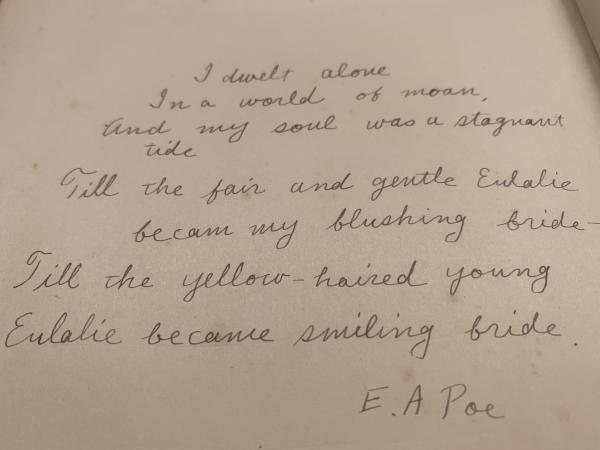 I dwelt alone
In a world of moan,
And my soul was a stagnant
tide
Till the fair and gentle Eulalie
becam my blushing bride-
Till the yellow-haired young
Eulalie became smiling bride.
E. A Poe